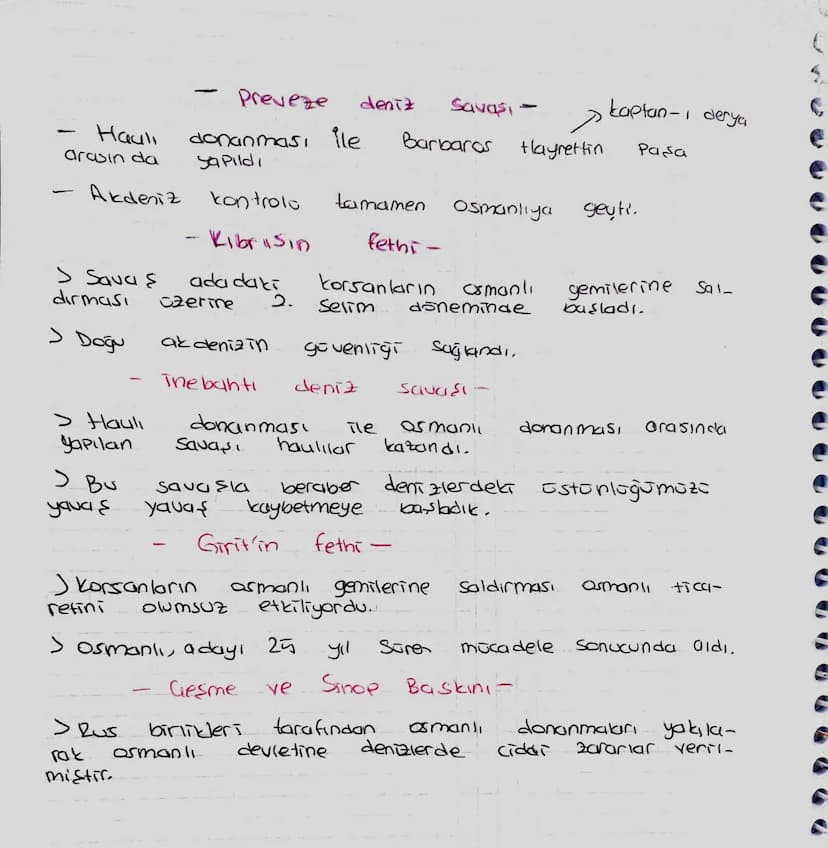 - Preveze deniz savaşı -
kaptan-ı derya
- Haçlı donanması ile Barbaros Hayrettin Paşa
arasında yapıldı
- Akdeniz kontrolü tamamen Osmanlıya geçti.
- Kıbrısın fethi -
> Savaş adadaki korsanların osmanlı gemilerine sal-
dırması üzerine 2. Selim döneminde başladı.
> Doğu akdenizin güvenliği sağlandı.
- İnebahtı deniz savaşı -
> Haçlı donanması ile osmanlı donanması arasında
yapılan savaşı haçlılar kazandı.
> Bu savaşla beraber denizlerdeki üstünlüğümüzü
yavaş yavaş kaybetmeye başladık.
- Girit'in fethi -
> Korsanların osmanlı gemilerine saldırması osmanlı tica-
retini olumsuz etkiliyordu.
> Osmanlı, adayı 25 yıl süren mücadele sonucunda aldı.
- Çeşme ve Sinop Baskını -
> Rus birlikleri tarafından osmanlı donanmaları yakıla-
rak osmanlı devletine denizlerde ciddi zararlar veril-
miştir.